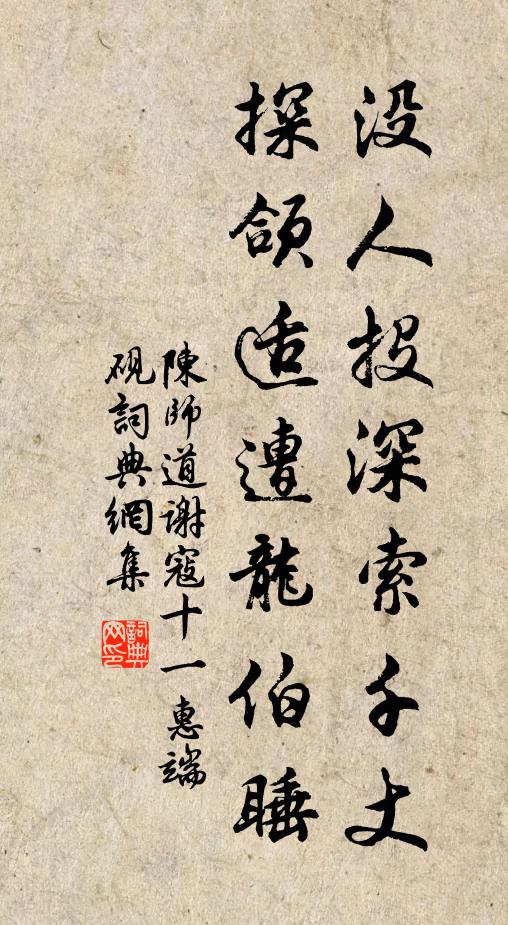 没人投深索千丈
探頜适遭龍伯睡
陳師道谢寇十一惠端
硯詞典網集
詞典网印